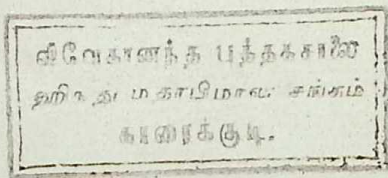 விவேகானந்த புத்தகசாலை
ஹிந்து மகாபிமான சங்கம்
காரைக்குடி.